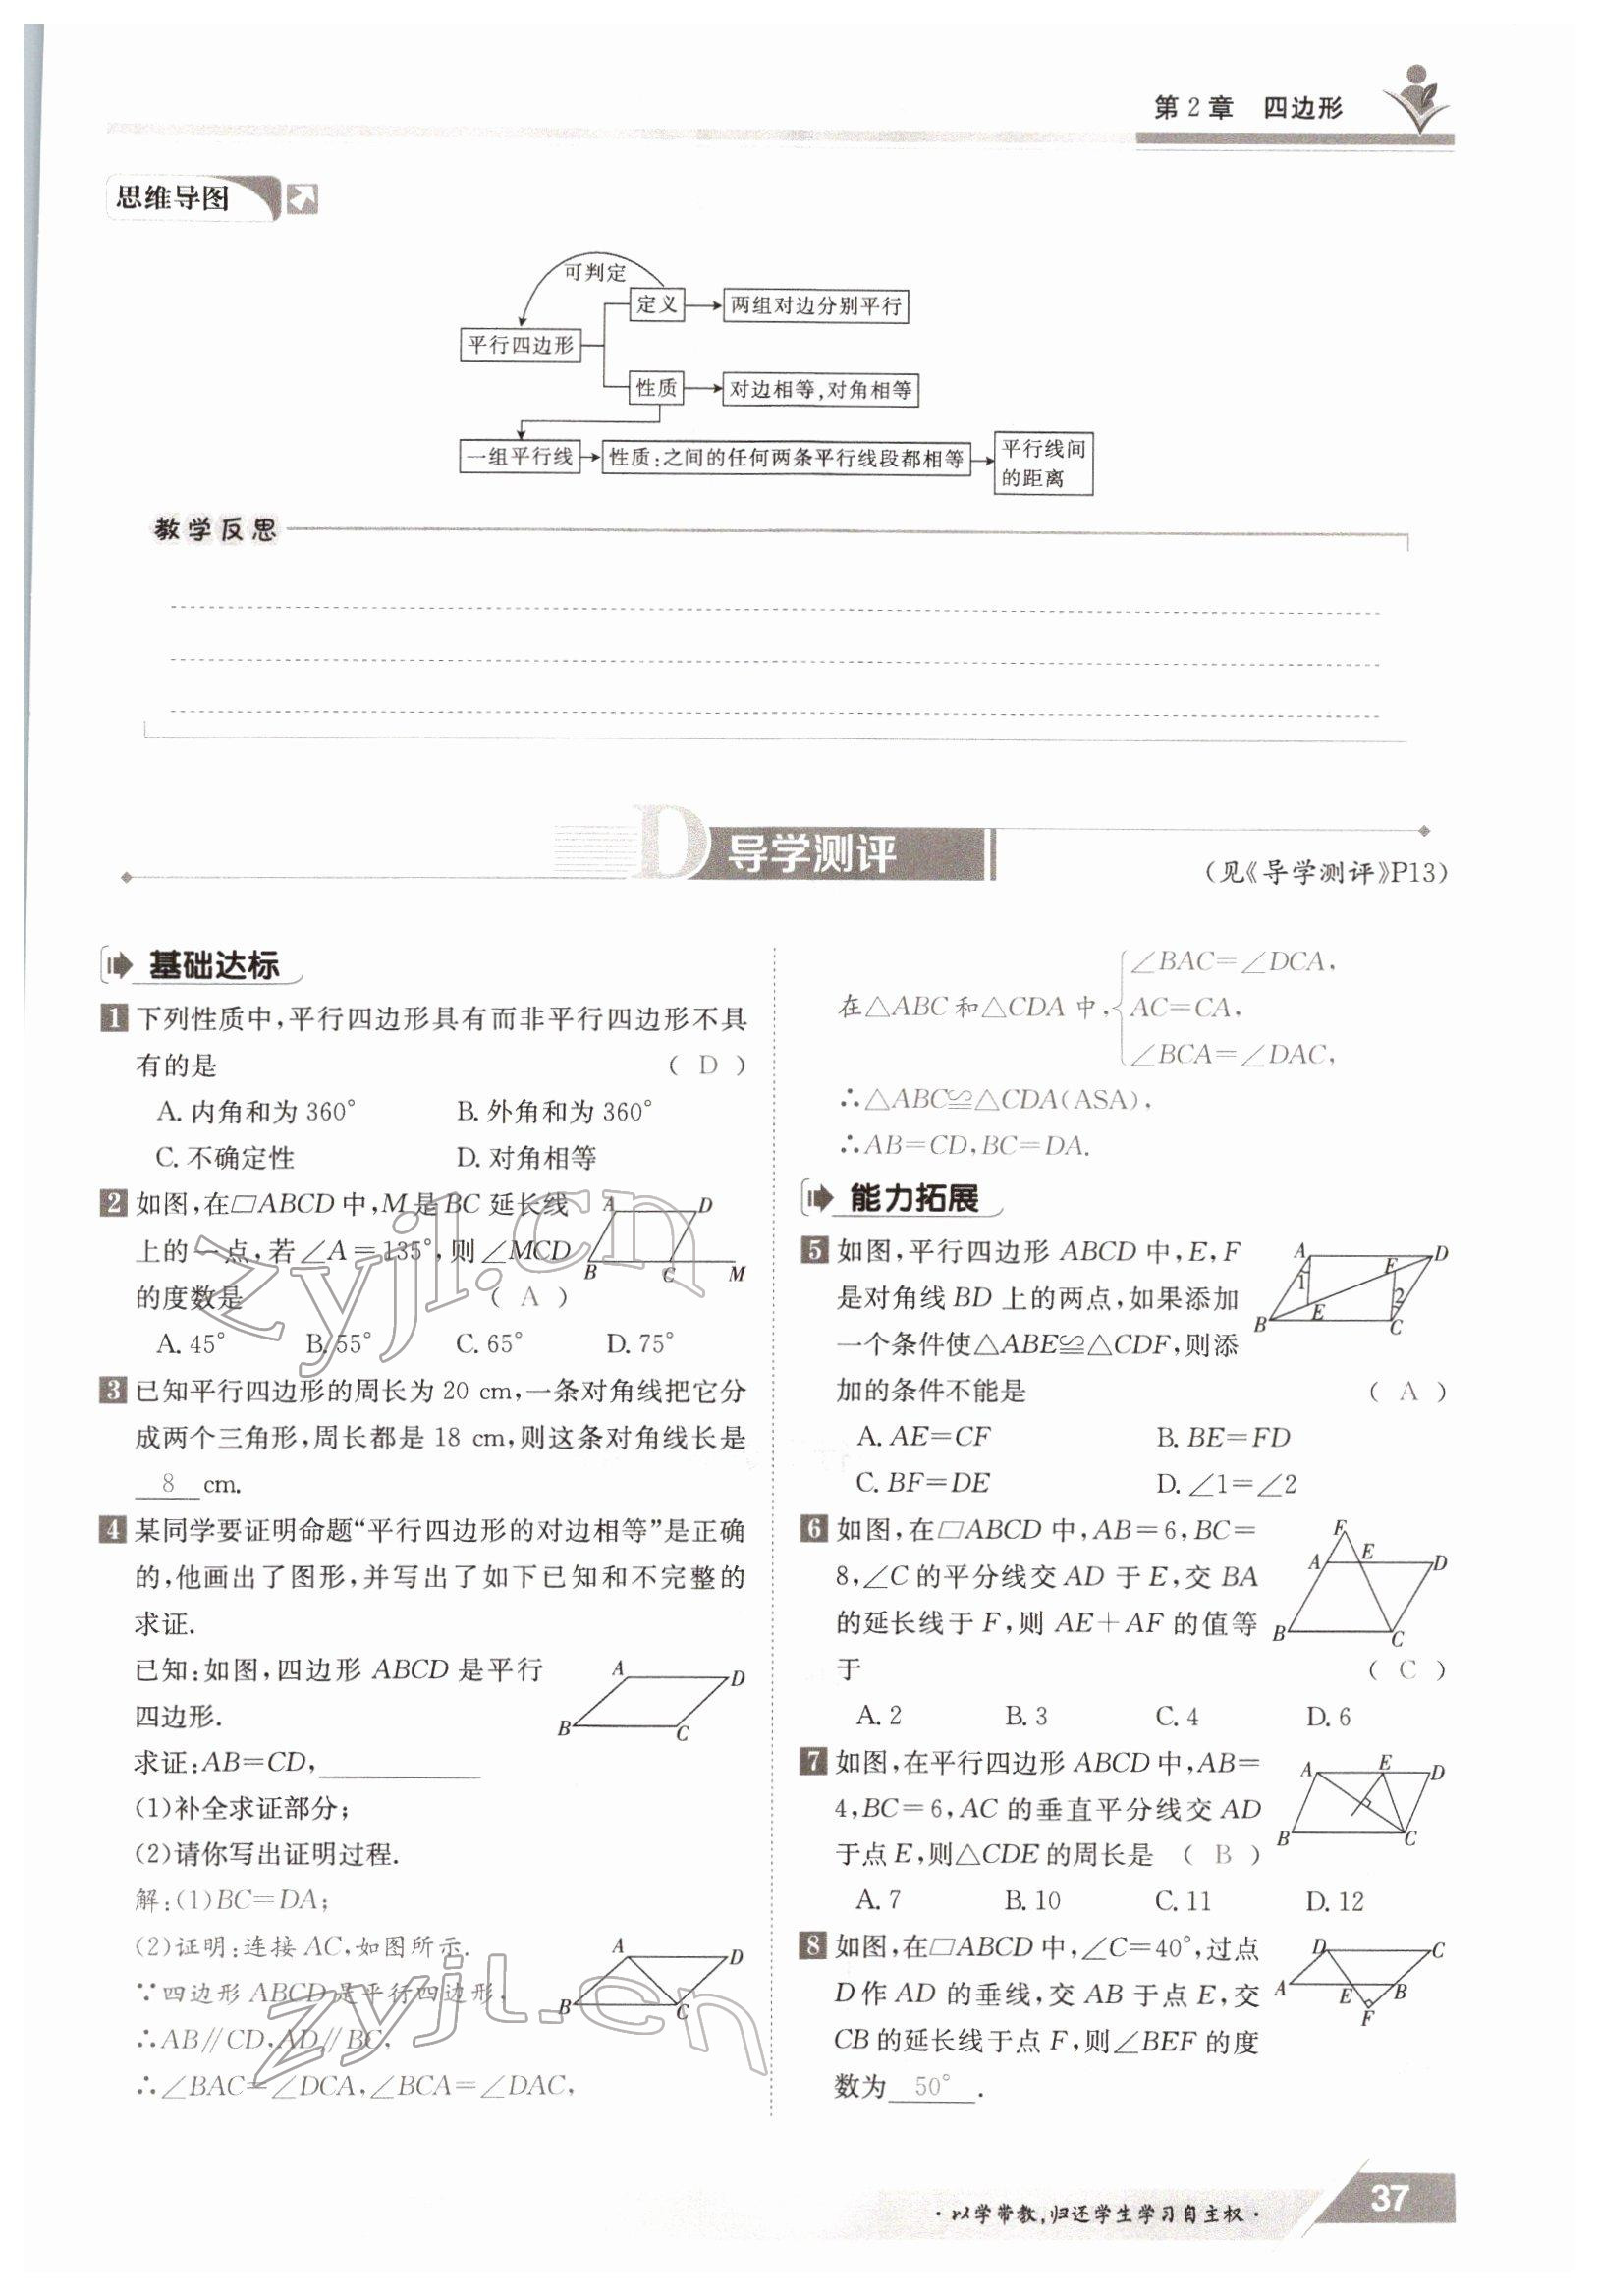 第2章 四边形
思维导图
可判定
定义
两组对边分别平行
平行四边形
性质
对边相等,对角相等
一组平行线
性质:之间的任何两条平行线段都相等
平行线间
的距离
教学反思
D 导学测评
(见《导学测评》P13)
基础达标
1 下列性质中,平行四边形具有而非平行四边形不具
有的是 ( D )
A. 内角和为 360° B. 外角和为 360°
C. 不确定性 D. 对角相等
2 如图,在▱ABCD 中,M 是 BC 延长线
上的一点,若∠A=135°,则∠MCD
的度数是 ( A )
A. 45° B. 55° C. 65° D. 75°
A D
B C M
3 已知平行四边形的周长为 20 cm,一条对角线把它分
成两个三角形,周长都是 18 cm,则这条对角线长是
8 cm.
4 某同学要证明命题“平行四边形的对边相等”是正确
的,他画出了图形,并写出了如下已知和不完整的
求证.
已知:如图,四边形 ABCD 是平行
四边形.
A D
B C
求证:AB=CD,
(1)补全求证部分;
(2)请你写出证明过程.
解:(1)BC=DA;
(2)证明:连接 AC,如图所示.
∵四边形 ABCD 是平行四边形,
∴AB∥CD,AD∥BC,
∴∠BAC=∠DCA,∠BCA=∠DAC,
A D
B C
在△ABC 和△CDA 中,
∠BAC=∠DCA,
AC=CA,
∠BCA=∠DAC,
∴△ABC≌△CDA(ASA),
∴AB=CD,BC=DA.
能力拓展
5 如图,平行四边形 ABCD 中,E,F
是对角线 BD 上的两点,如果添加
一个条件使△ABE≌△CDF,则添
加的条件不能是 ( A )
A. AE=CF B. BE=FD
C. BF=DE D. ∠1=∠2
A D
1 F
E 2
B C
6 如图,在▱ABCD 中,AB=6,BC=
8,∠C 的平分线交 AD 于 E,交 BA
的延长线于 F,则 AE+AF 的值等
于 ( C )
A. 2 B. 3 C. 4 D. 6
F
A E D
B C
7 如图,在平行四边形 ABCD 中,AB=
4,BC=6,AC 的垂直平分线交 AD
于点 E,则△CDE 的周长是 ( B )
A. 7 B. 10 C. 11 D. 12
A E D
B C
8 如图,在▱ABCD 中,∠C=40°,过点
D 作 AD 的垂线,交 AB 于点 E,交
CB 的延长线于点 F,则∠BEF 的度
数为 50° .
D C
A E B
F
zyjl.cn
zyjl.cn
·以学带教,归还学生学习自主权·
37